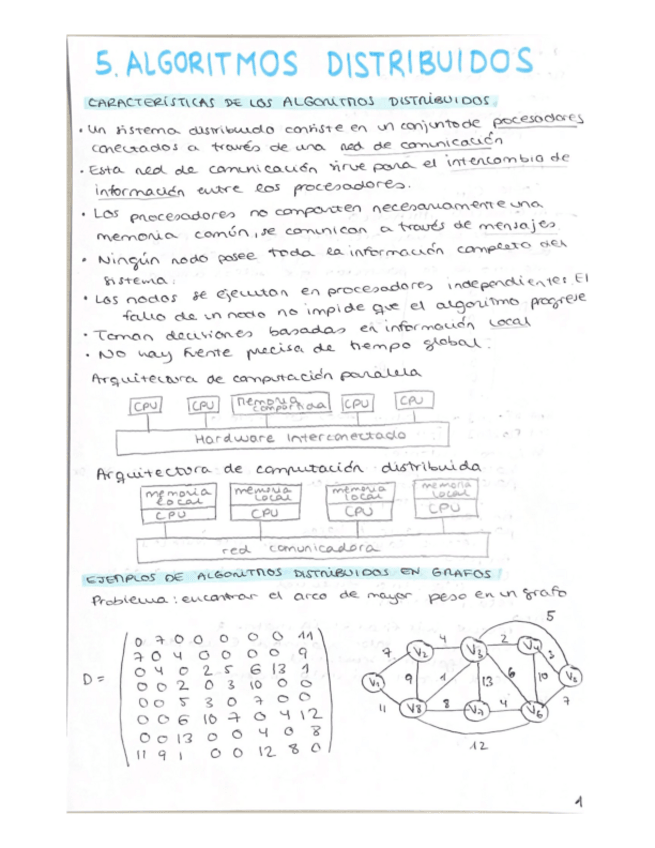 5. ALGORITMOS DISTRIBUIDOS
CARACTERÍSTICAS DE LOS ALGORITMOS DISTRIBUIDOS
• Un sistema distribuido consiste en un conjunto de pocesadores
conectados a través de una red de comunicación
• Esta red de comunicación sirve para el intercambio de
información entre los procesadores.
• Los procesadores no comparten necesariamente una
memoria común, se comunican a través de mensajes
• Ningún nodo posee toda la información completa del
sistema.
• Los nodos se ejecutan en procesadores independientes. El
fallo de un nodo no impide que el algoritmo progrese
• Toman decisiones basadas en información local
• No hay fuente precisa de tiempo global.
Arquitectura de computación paralela
CPU CPU memoria compartida CPU CPU
Hardware Interconectado
Arquitectura de computación distribuida
memoria local memoria local memoria local memoria local
CPU CPU CPU CPU
red comunicadora
EJEMPLOS DE ALGORITMOS DISTRIBUIDOS EN GRAFOS
Problema: encontrar el arco de mayor peso en un grafo
D =
0 7 0 0 0 0 0 11
7 0 4 0 0 0 0 9
0 4 0 2 5 6 13 1
0 0 2 0 3 10 0 0
0 0 5 3 0 7 0 0
0 0 6 10 7 0 4 12
0 0 13 0 0 4 0 8
11 9 1 0 0 12 8 0
5
4 2
7 V2 V3 V4 3
V1 9 1 13 6 10
11 V8 8 V7 4 V6 7
12
1